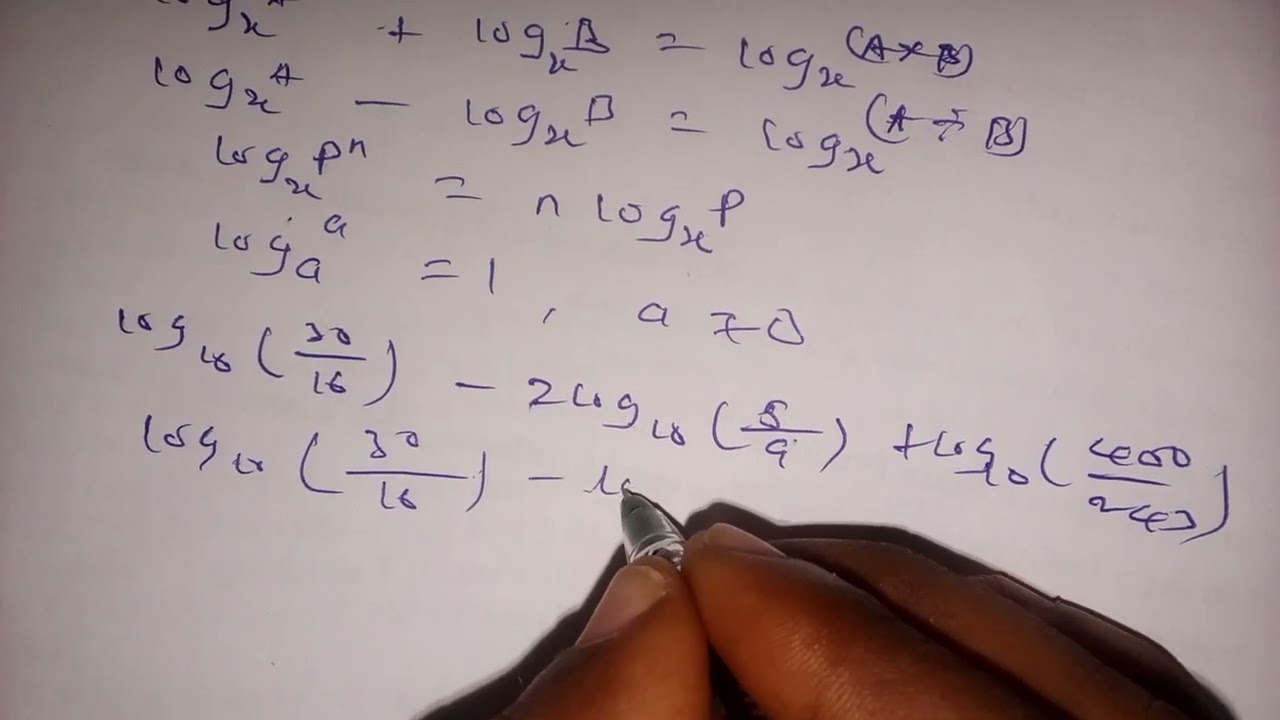 log_x^A + log_x^B = log_x^(A×B)
log_x^A − log_x^B = log_x^(A÷B)
log_x P^n = n log_x^P
log_a^a = 1, a ≠ 0
log_10 (30/16) − 2log_10 (5/9) + log_10 (400/243)
log_10 (30/16) − lo